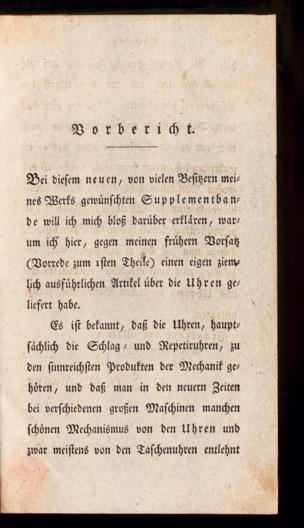 Vorbericht.
Bei diesem neuen, von vielen Besitzern mei-
nes Werks gewünschten Supplementban-
de will ich mich bloß darüber erklären, war-
um ich hier, gegen meinen frühern Vorsatz
(Vorrede zum 1sten Theile) einen eigen ziem-
lich ausführlichen Artikel über die Uhren ge-
liefert habe.
Es ist bekannt, daß die Uhren, haupt-
sächlich die Schlag- und Repetiruhren, zu
den sinnreichsten Produkten der Mechanik ge-
hören, und daß man in den neuern Zeiten
bei verschiedenen großen Maschinen manchen
schönen Mechanismus von den Uhren und
zwar meistens von den Taschenuhren entlehnt